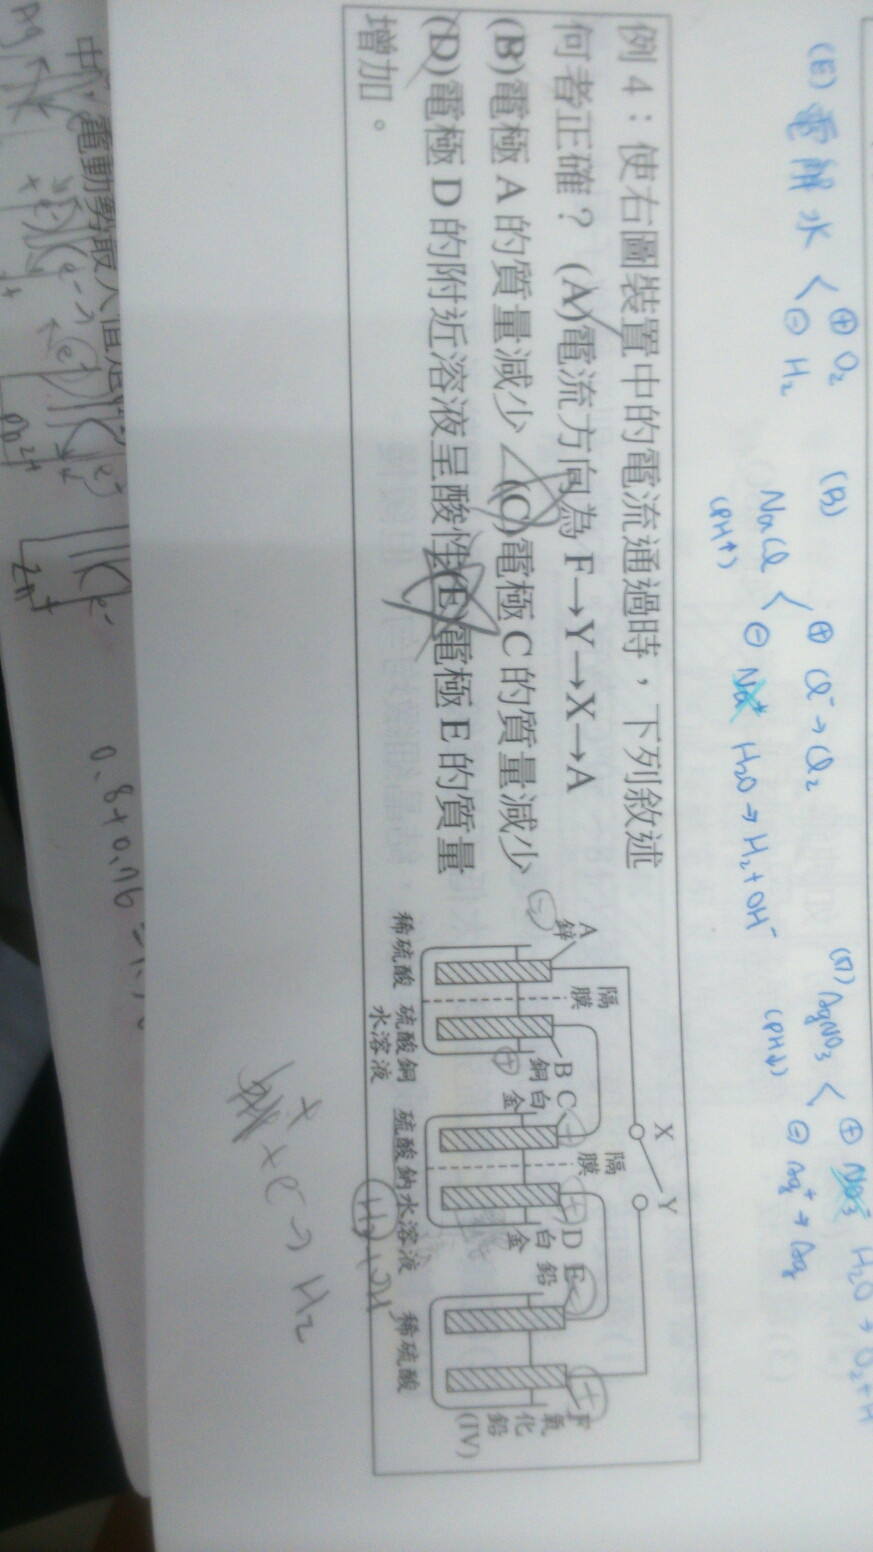 (E) 電解水 < ⊕ O₂
⊖ H₂
(B) NaCl < ⊕ Cl⁻ → Cl₂
(PH↑) ⊖ Na⁺ H₂O → H₂ + OH⁻
(D) AgNO₃ < ⊕ NO₃⁻ H₂O → O₂ + H
(PH↓) ⊖ Ag⁺ → Ag
例 4：使右圖裝置中的電流通過時，下列敘述
何者正確？(A)電流方向為 F→Y→X→A
(B)電極 A 的質量減少 (C)電極 C 的質量減少
(D)電極 D 的附近溶液呈酸性 (E)電極 E 的質量
增加。
X Y
A 鋅 隔膜 B 銅 C 白金 隔膜 D 白金 E 鉛 F 氧化鉛(IV)
⊖ ⊕ − + − +
稀硫酸 硫酸銅水溶液 硫酸鈉水溶液 稀硫酸
H₂ + OH
+ e⁻ → H₂
中，電動勢最大值是
Ag
Zn